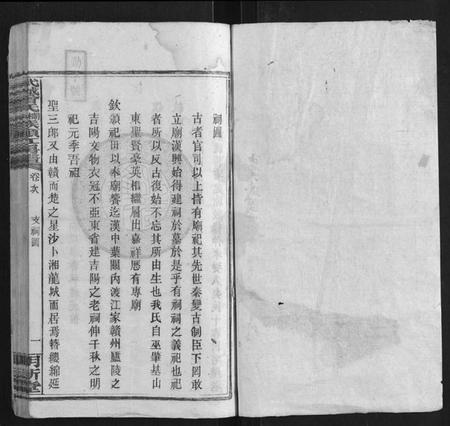 祠圖
古者官司以上皆有廟祀其先世秦變古制臣下罔敢
立廟漢興始得建祠於墓於是乎有祠祠之義祀也祀
者所以反古復始不忘其所由生也我氏自巫肇基山
東聖賢豪英相繼層出嘉祥厯有專廟
欽頒祀田以奉廟饗迄漢中葉關內渡江家贛州廬陵之
吉陽文物衣冠不亞東省建吉陽之老祠伸千秋之明
祀元季吾祖
聖三郎又由贛而楚之星沙卜湘龍城而居焉簪纓綿延
武城曾氏
卷次
支祠圖
一